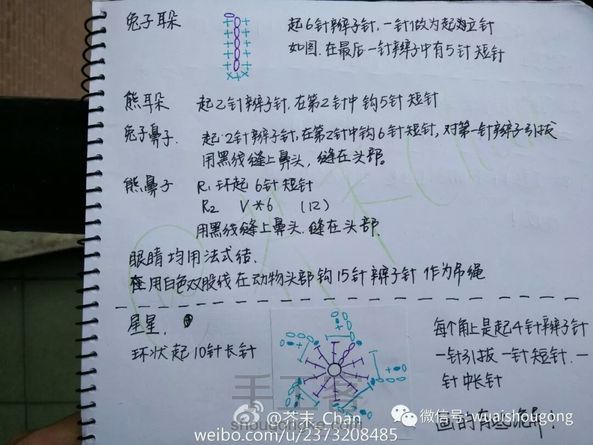 兔子耳朵 起6针辫子针，一针做为起立针
如图，在最后一针辫子中有5针短针
熊耳朵 起2针辫子针，在第2针中钩5针短针
兔子鼻子 起2针辫子针，在第2针中钩6针短针，对第一针辫子引拔
用黑线缝上鼻头，缝在头部。
熊鼻子 R1 环起6针短针
R2 V*6 (12)
用黑线缝上鼻头，缝在头部
眼睛均用法式结。
用白色双股线在动物头部钩15针辫子针作为吊绳
星星.
环状起10针长针
每个角上是起4针辫子针
一针引拔 一针短针.一
针中长针
画的有些
@芥末_Chan_
微信号: wuaishougong
weibo.com/u/2373208485